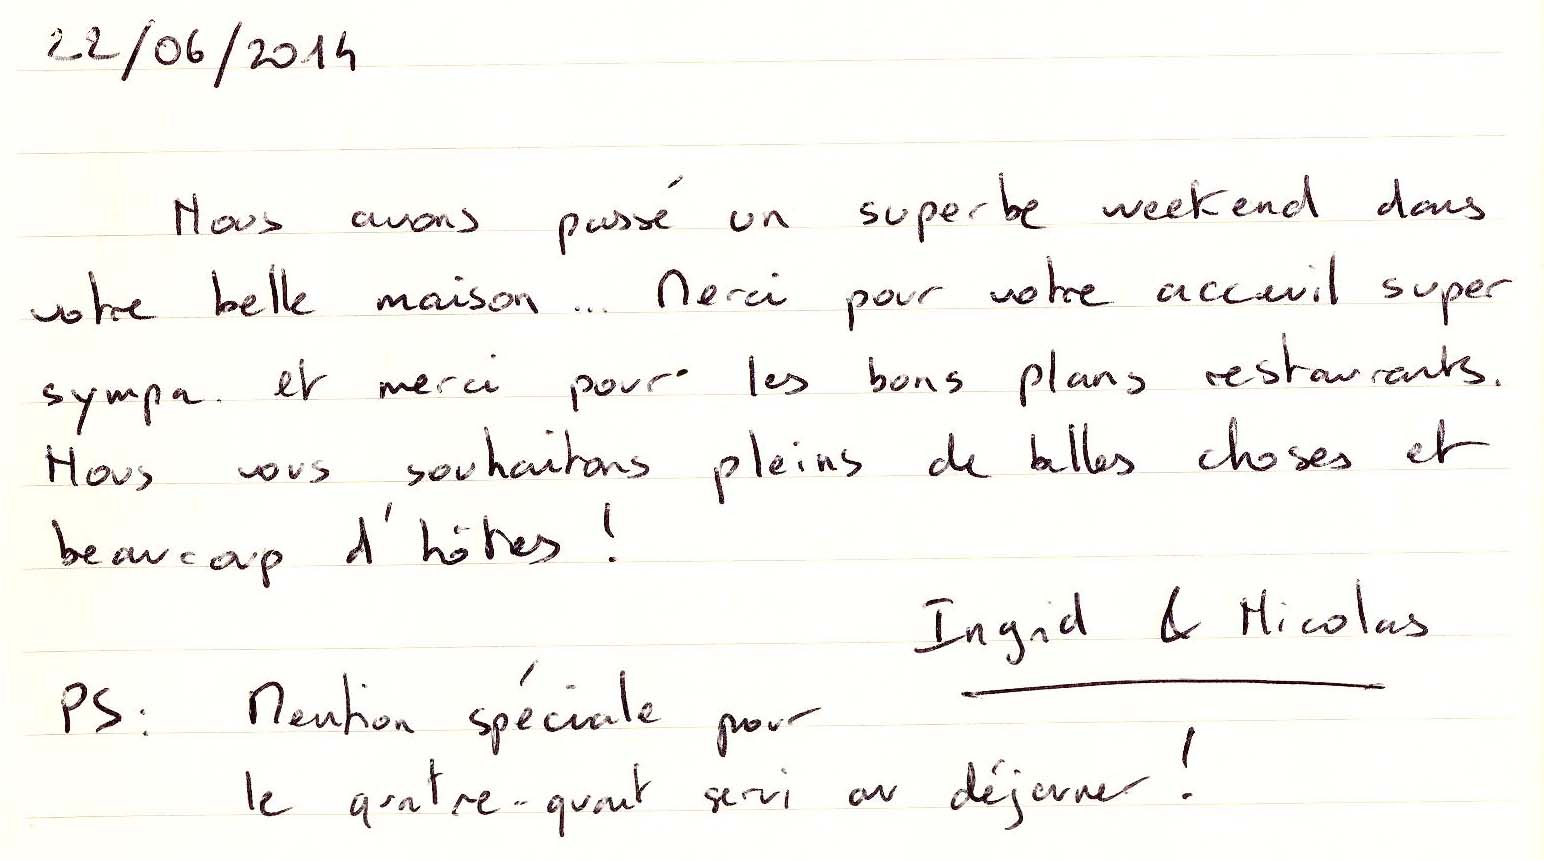 22/06/2014
Nous avons passé un superbe weekend dans
votre belle maison... Merci pour votre acceuil super
sympa. et merci pour les bons plans restaurants.
Nous vous souhaitons pleins de belles choses et
beaucoup d'hôtes !
Ingrid & Nicolas
PS: Mention spéciale pour
le quatre-quart servi au déjeuner !